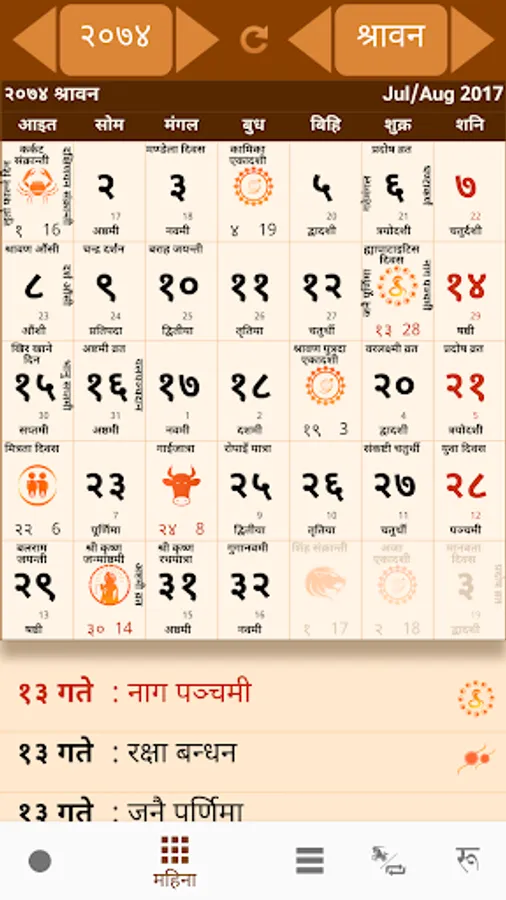 २०७४
श्रावन
२०७४ श्रावन
Jul/Aug 2017
आइत सोम मंगल बुध बिहि शुक्र शनि
कर्कट संक्रान्ती
मण्डेला दिवस
कामिका एकादशी
प्रदोष व्रत
१ 16
२ 17 अष्टमी
३ 18 नवमी
४ 19
५ 20 द्वादशी
६ 21 त्रयोदशी
७ 22 चतुर्दशी
श्रावण औंसी
चन्द्र दर्शन
बराह जयन्ती
ह्यापाटाइटिस दिवस
दर्श औंसी
जनै पूर्णिमा
नाग पञ्चमी
८ 23 औंशी
९ 24 प्रतिपदा
१० 25 द्वितीया
११ 26 तृतिया
१२ 27 चतुर्थी
१३ 28
१४ 29 षष्ठी
खिर खाने दिन
अष्टमी व्रत
श्रावण पुत्रदा एकादशी
वरलक्ष्मी व्रत
प्रदोष व्रत
१५ 30 सप्तमी
१६ 31 अष्टमी
१७ 1 नवमी
१८ 2 दशमी
१९ 3
२० 4 द्वादशी
२१ 5 त्रयोदशी
मित्रता दिवस
गाईजात्रा
रोपाइँ यात्रा
संकष्टी चतुर्थी
युवा दिवस
२२ 6
२३ 7 पूर्णिमा
२४ 8
२५ 9 द्वितीया
२६ 10 तृतिया
२७ 11 चतुर्थी
२८ 12 पञ्चमी
बलराम जयन्ती
श्री कृष्ण जन्माष्टमी
श्री कृष्ण रथयात्रा
गुगानवमी
सिंह संक्रान्ती
अजा एकादशी
मानवता दिवस
अष्टमी व्रत
प्रदोष व्रत
२९ 13 षष्ठी
३० 14
३१ 15 अष्टमी
३२ 16 नवमी
१ 17
२ 18
३ 19 द्वादशी
१३ गते : नाग पञ्चमी
१३ गते : रक्षा बन्धन
१३ गते : जनै पूर्णिमा
महिना
रू